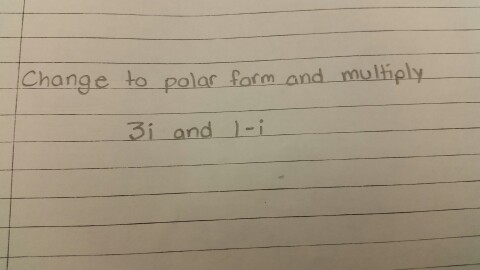 Change to polar form and multiply
3i and 1-i